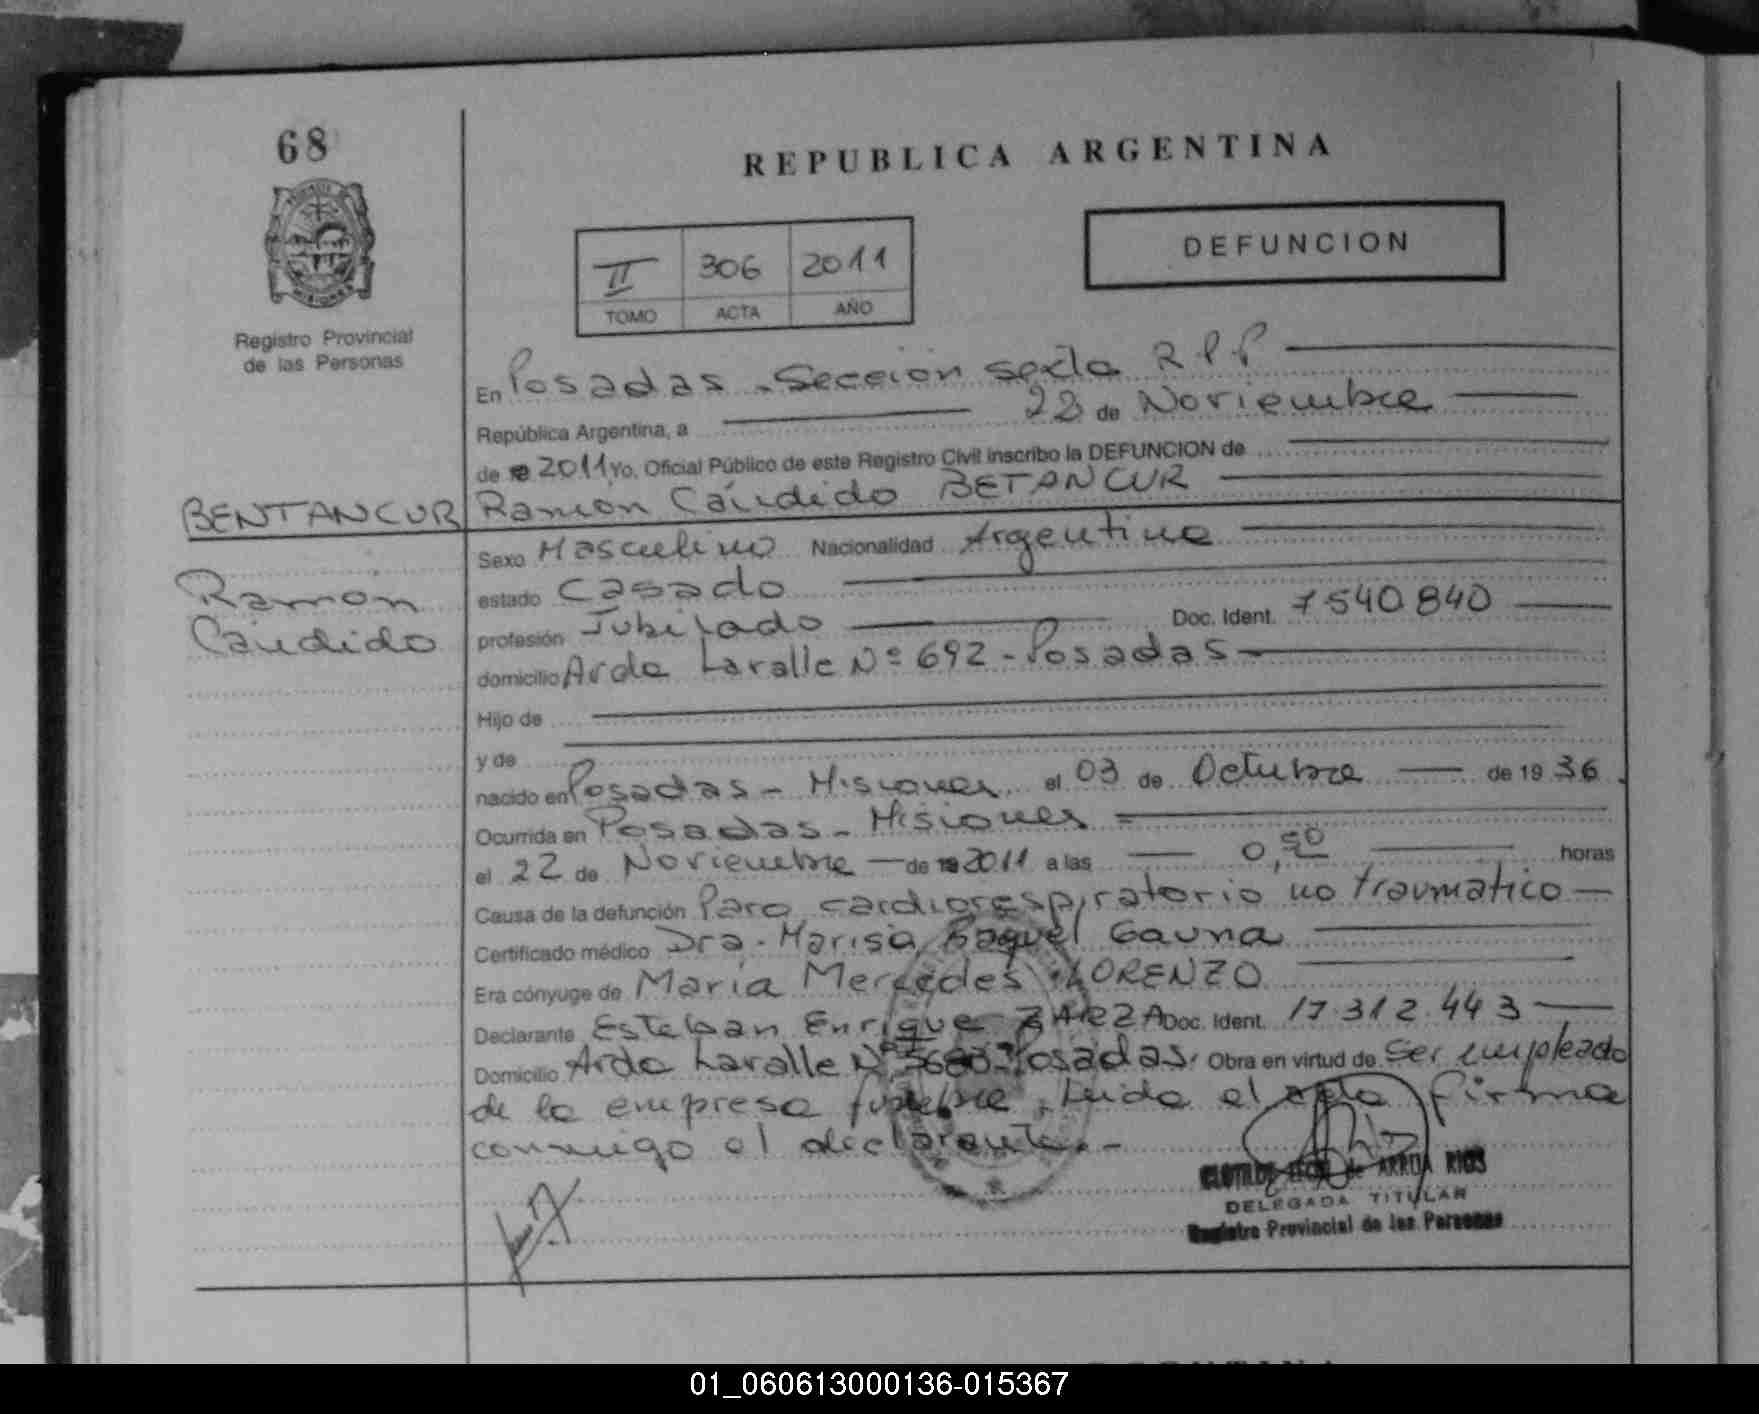 68
REPUBLICA ARGENTINA
MISIONES
Registro Provincial
de las Personas
II 306 2011
TOMO ACTA AÑO
DEFUNCION
En Posadas - Sección sexta R.P.P
República Argentina, a 22 de Noviembre
de 2011 Yo, Oficial Público de este Registro Civil inscribo la DEFUNCION de
BENTANCUR Ramón Cándido BETANCUR
Ramon
Cándido
Sexo Masculino Nacionalidad Argentina
estado Casado
profesión Jubilado Doc. Ident. 7.540.840
domicilio Avda Lavalle Nº 692 - Posadas
Hijo de
y de
nacido en Posadas - Misiones el 03 de Octubre de 1936
Ocurrida en Posadas - Misiones
el 22 de Noviembre de 2011 a las 0,50 horas
Causa de la defunción Paro cardiorespiratorio no traumático
Certificado médico Dra. Marisa Raquel Gauna
Era cónyuge de María Mercedes LORENZO
Declarante Esteban Enrique Doc. Ident. 17.312.443
Domicilio Avda Lavalle Nº Posadas. Obra en virtud de ser empleado
de la empresa fúnebre. Leida el acta firma
conmigo el declarante.-
de ARRUA RIOS
DELEGADA TITULAR
Registro Provincial de las Personas
01_060613000136-015367